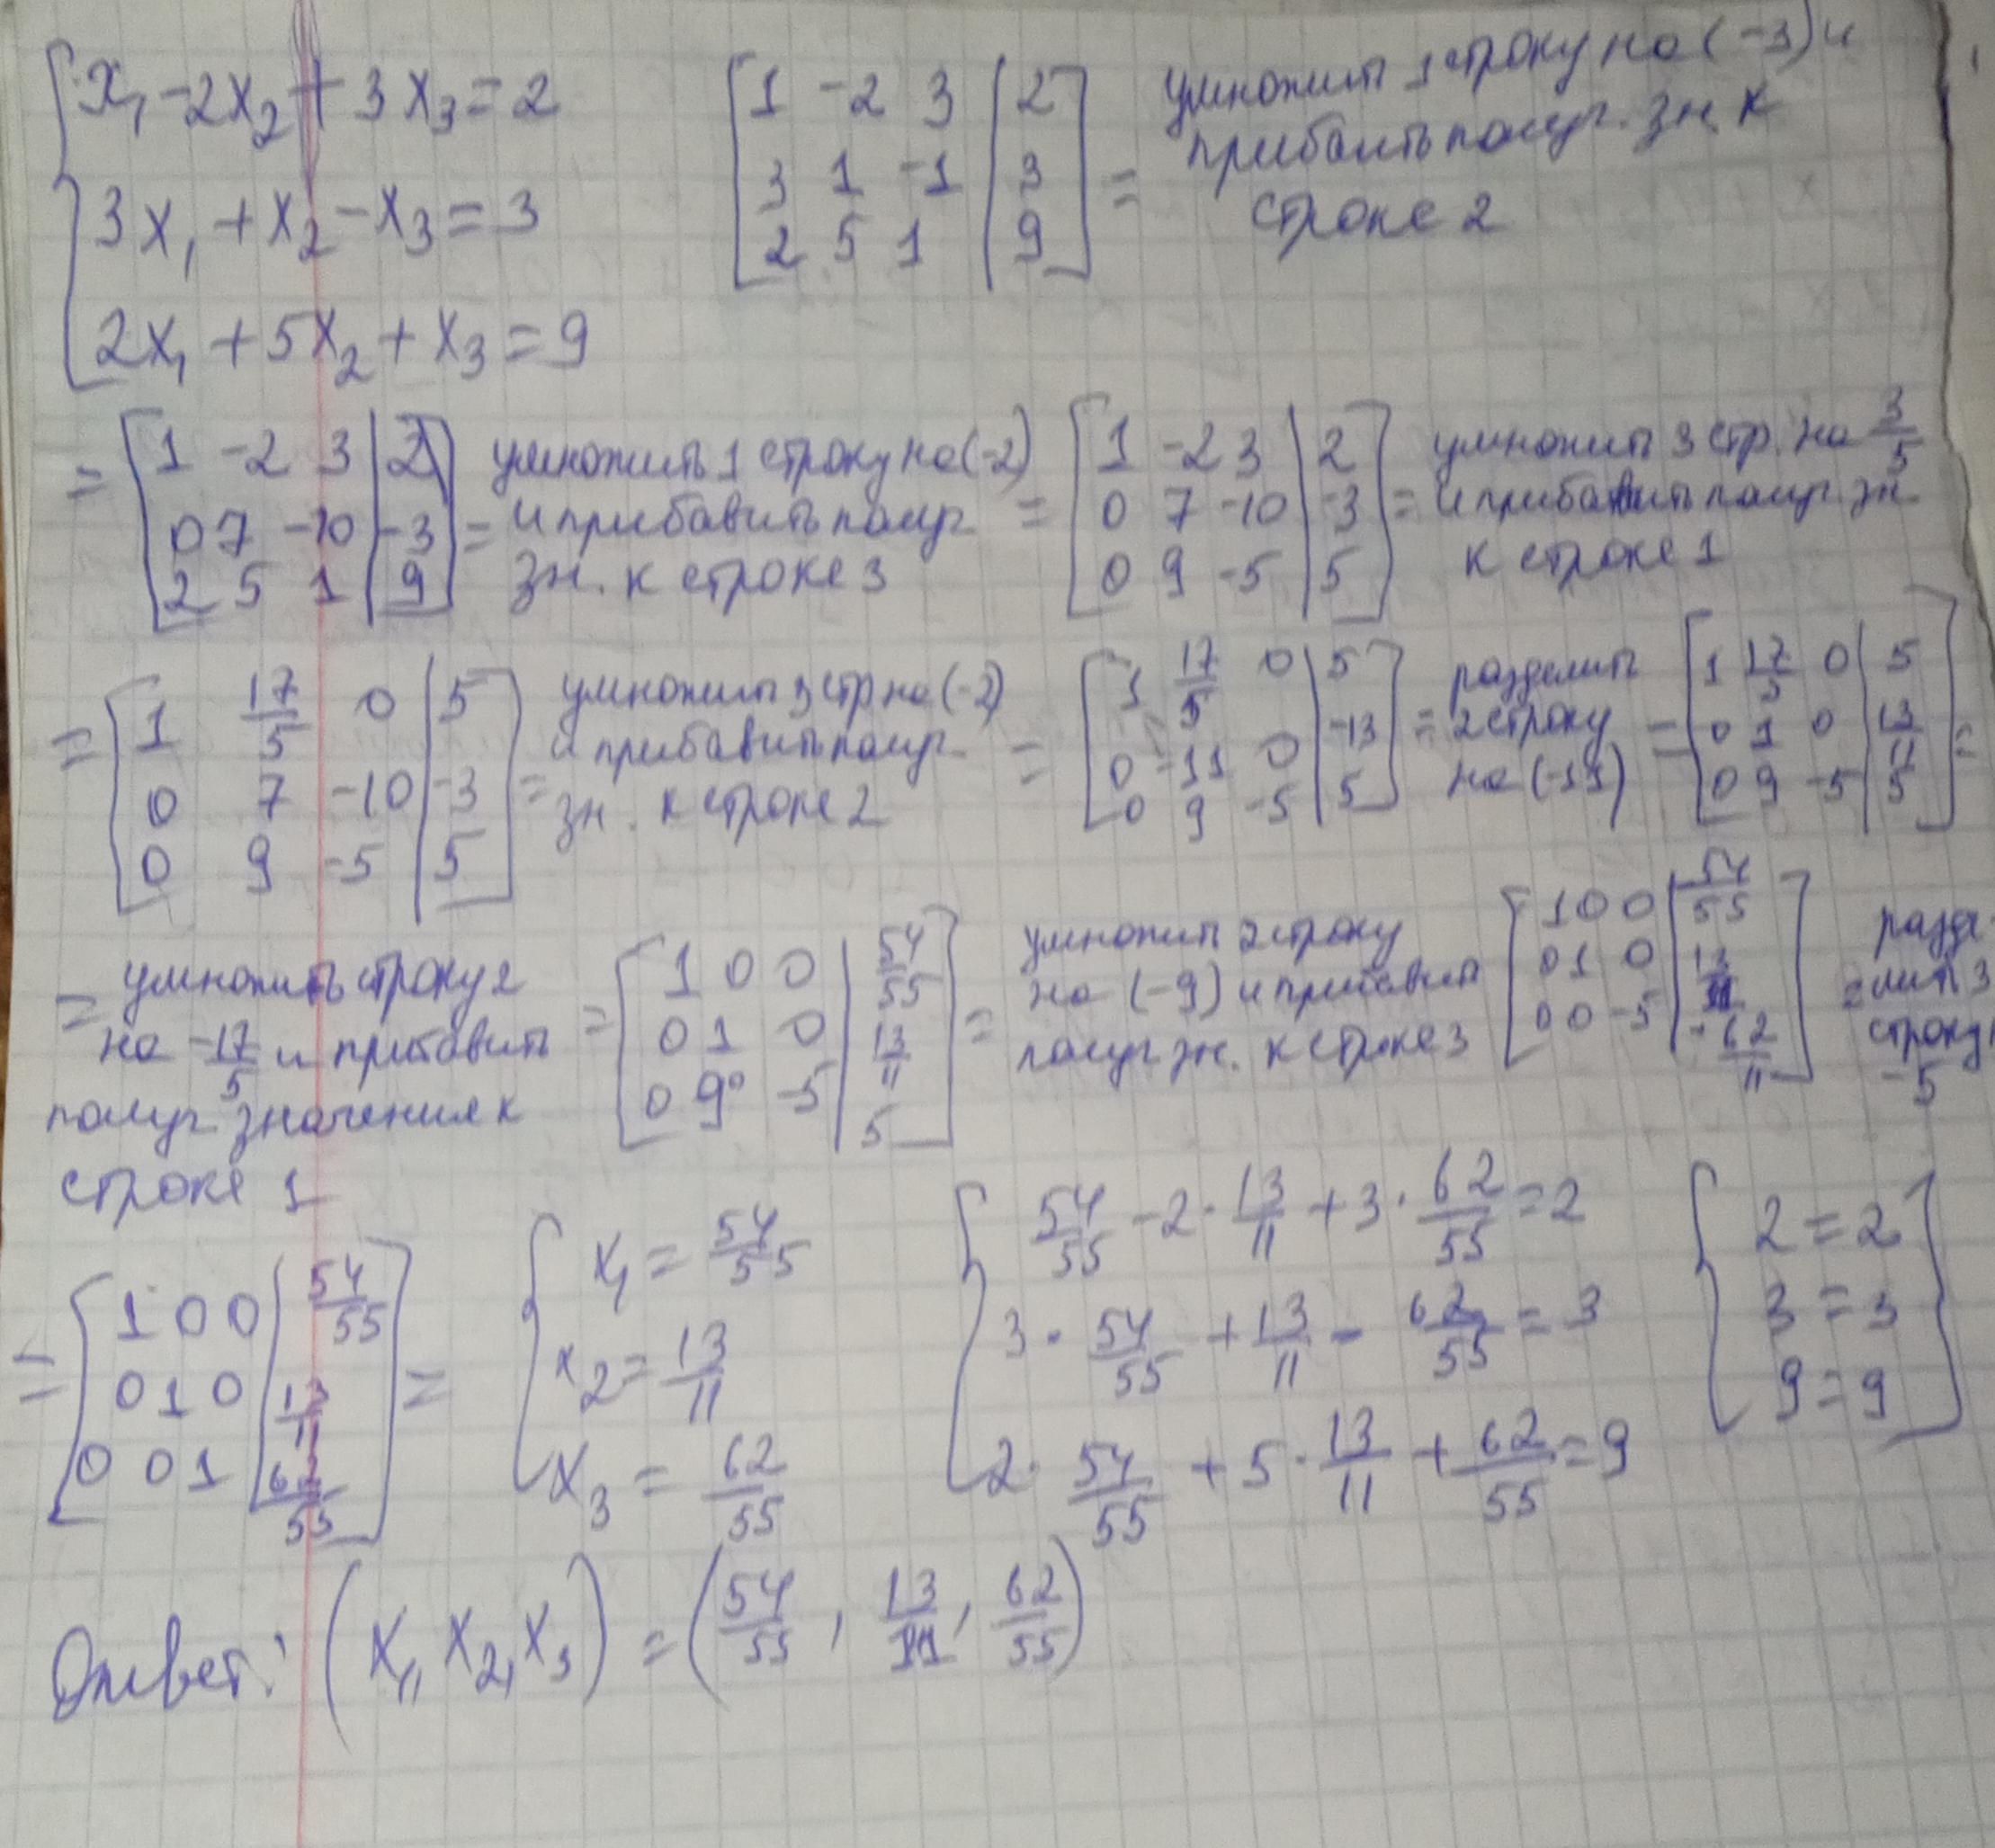 x₁ - 2x₂ + 3x₃ = 2
3x₁ + x₂ - x₃ = 3
2x₁ + 5x₂ + x₃ = 9
1 -2 3 | 2
3 1 -1 | 3
2 5 1 | 9
=
умножить 1 строку на (-3) и
прибавить получ. зн. к
строке 2
=
1 -2 3 | 2
0 7 -10 | -3
2 5 1 | 9
=
умножить 1 строку на (-2)
и прибавить получ
зн. к строке 3
=
1 -2 3 | 2
0 7 -10 | -3
0 9 -5 | 5
=
умножить 3 стр. на 3/5
и прибавить получ. зн.
к строке 1
=
1 17/5 0 | 5
0 7 -10 | -3
0 9 -5 | 5
=
умножить 3 стр на (-2)
и прибавить получ.
зн. к строке 2
=
1 17/5 0 | 5
0 -11 0 | -13
0 9 -5 | 5
=
разделить
2 строку
на (-11)
=
1 17/5 0 | 5
0 1 0 | 13/11
0 9 -5 | 5
=
= умножить строку 2
на -17/5 и прибавить
получ. значения к
строке 1
=
1 0 0 | 54/55
0 1 0 | 13/11
0 9 -5 | 5
=
умножить 2 строку
на (-9) и прибавить
получ зн. к строке 3
1 0 0 | 54/55
0 1 0 | 13/11
0 0 -5 | -62/11
=
разде-
лить 3
строку
-5
=
1 0 0 | 54/55
0 1 0 | 13/11
0 0 1 | 62/55
=
x₁ = 54/55
x₂ = 13/11
x₃ = 62/55
54/55 - 2 · 13/11 + 3 · 62/55 = 2
3 · 54/55 + 13/11 - 62/55 = 3
2 · 54/55 + 5 · 13/11 + 62/55 = 9
2 = 2
3 = 3
9 = 9
Ответ: (x₁, x₂, x₃) = (54/55, 13/11, 62/55)